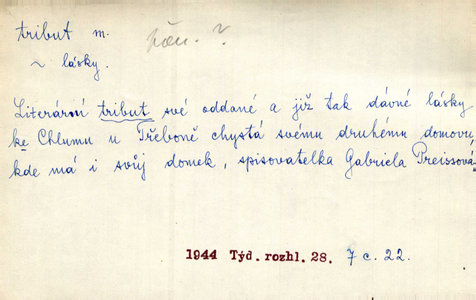 tribut m. přen. ?
~ lásky.
Literární tribut své oddané a již tak dávné lásky
ke Chlumu u Třeboně chystá svému druhému domovu,
kde má i svůj domek, spisovatelka Gabriela Preissová.
1944 Týd. rozhl. 28. 7 c. 22.